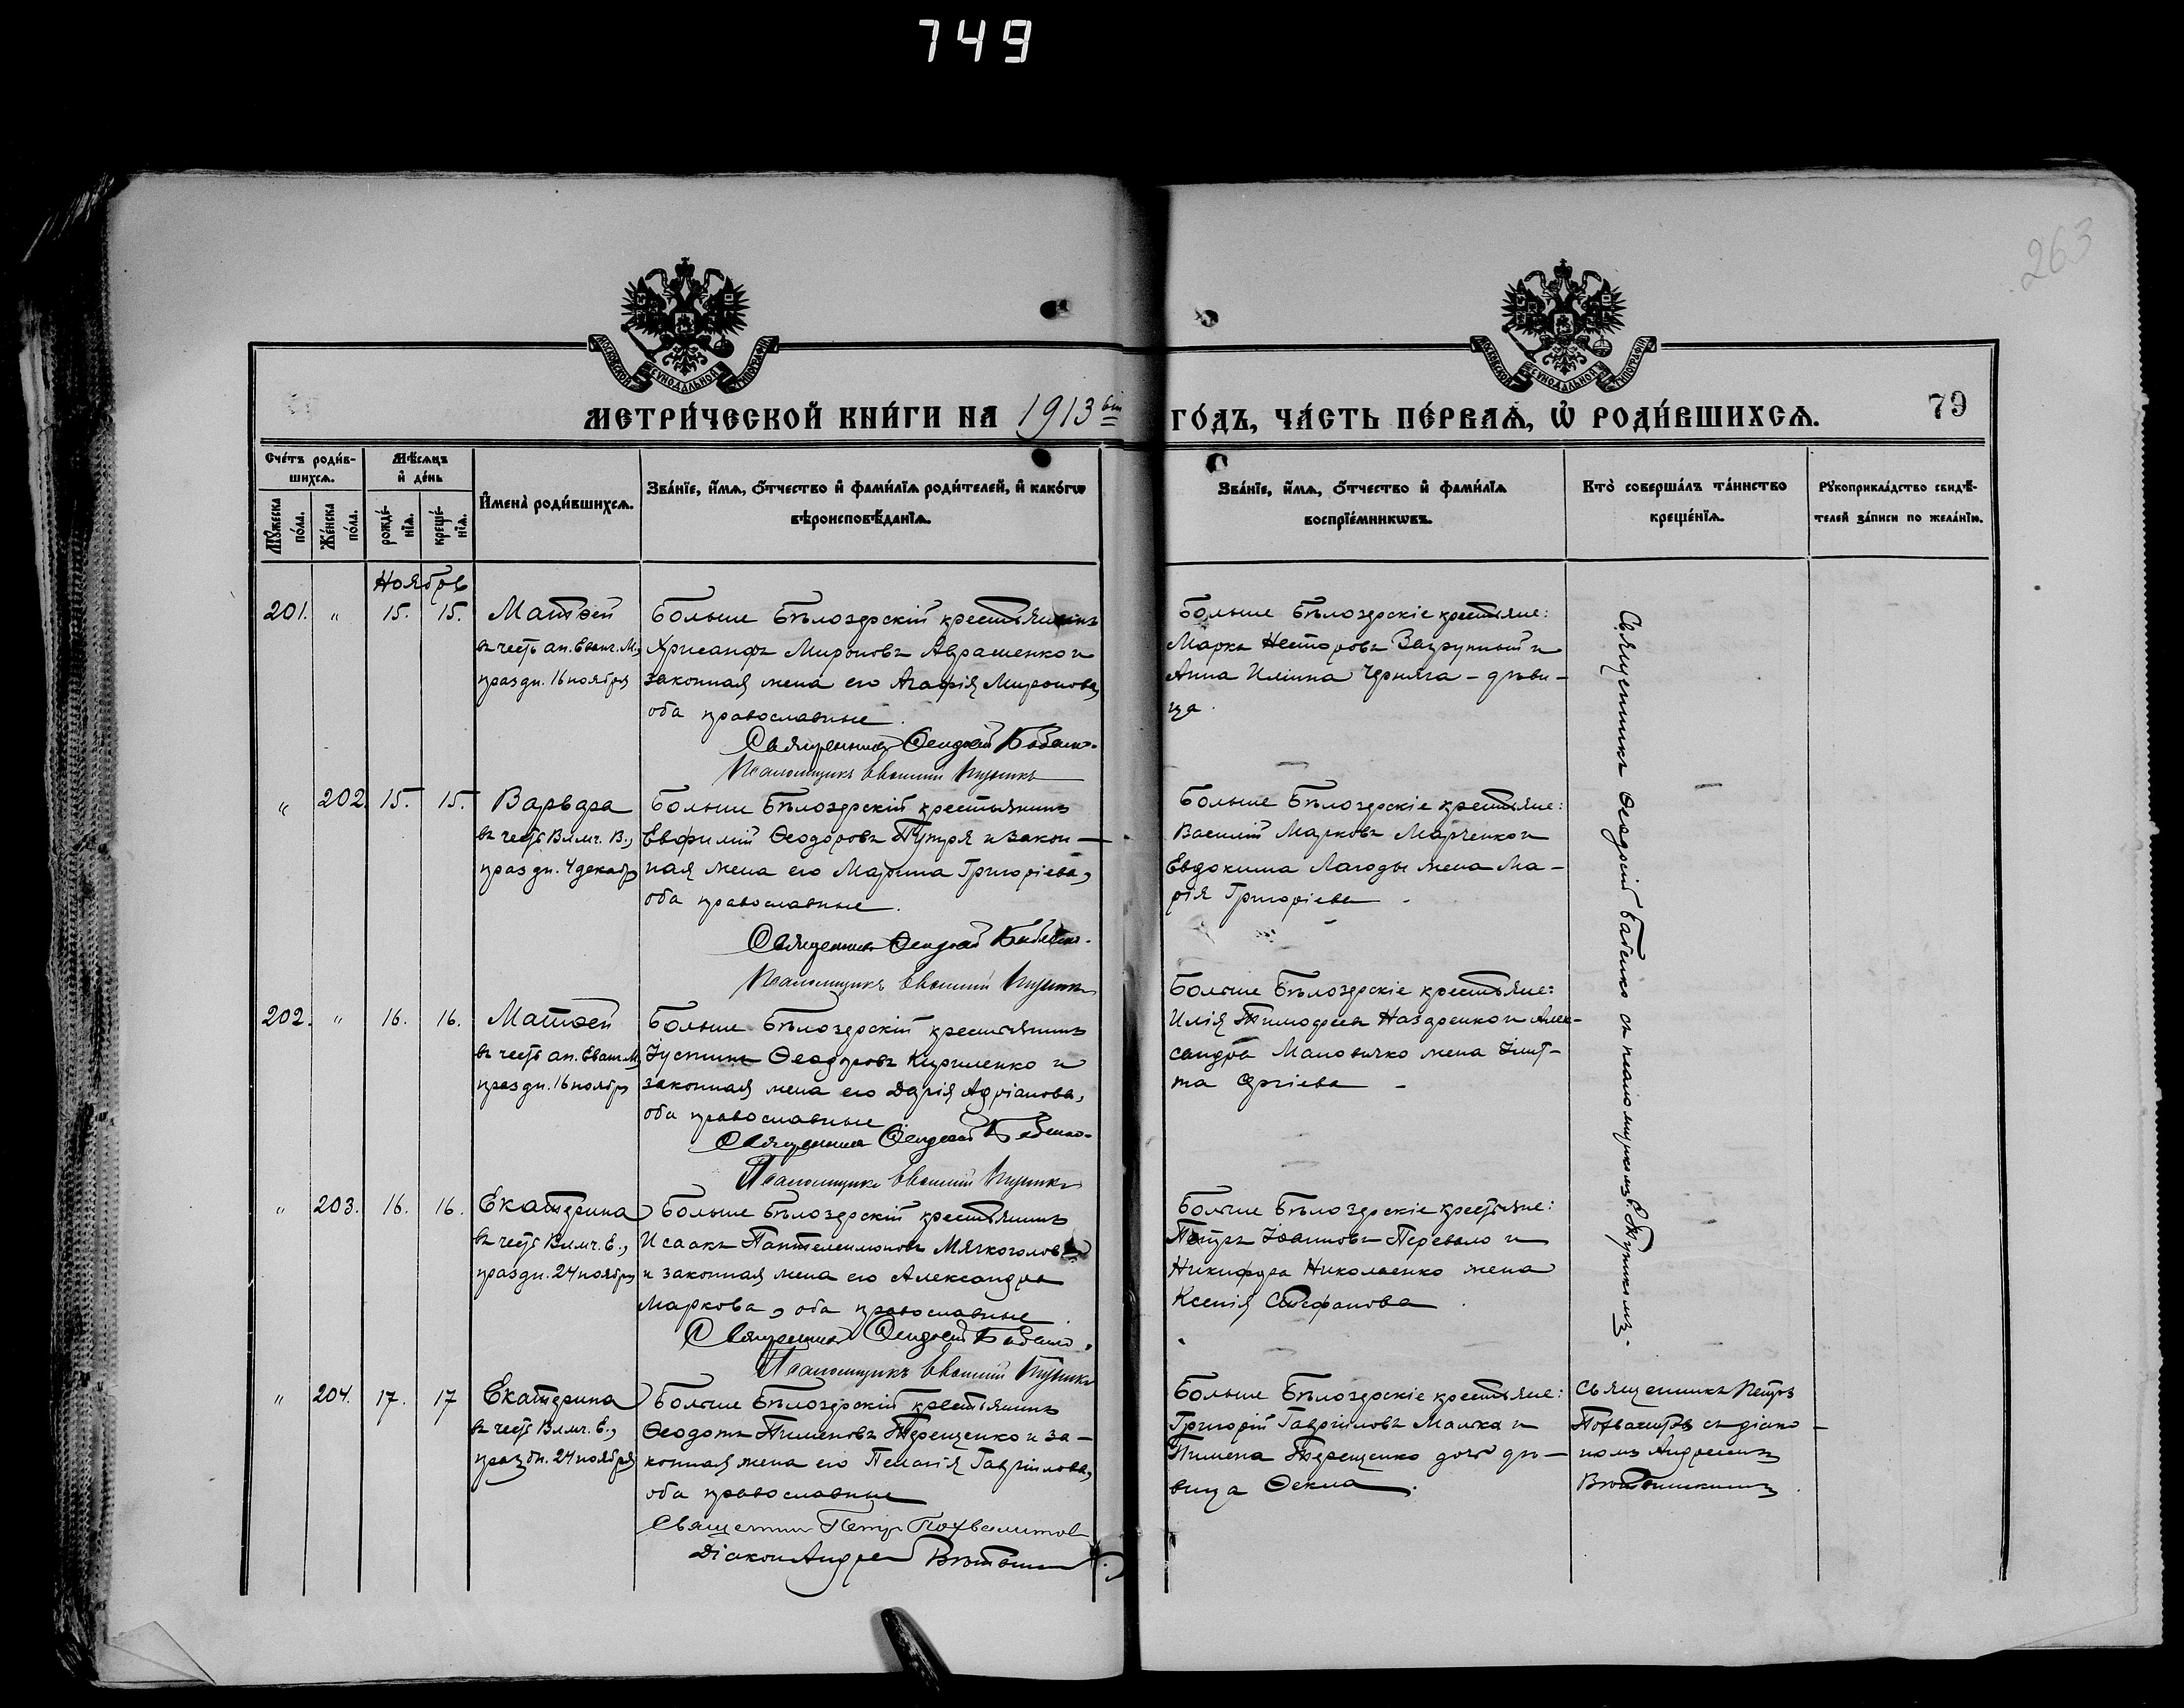 749
263
МОСКОВСКОЙ СѴНОДАЛЬНОЙ ТИПОГРАФІИ
МОСКОВСКОЙ СѴНОДАЛЬНОЙ ТИПОГРАФІИ
МЕТРИ́ЧЕСКОЙ КНИ́ГИ НА 1913 ГО́ДЪ, ЧА́СТЬ ПЕ́РВАѦ, Ѡ҆ РОДИ́ВШИХСѦ.
79
Сче́тъ роди́в-
шихсѧ.
Мѣ́сѧцъ
и҆ де́нь
Мꙋ́жеска по́ла.
Же́нска по́ла.
рожде́-
нїѧ.
креще́-
нїѧ.
И҆мена̀ роди́вшихсѧ.
Зва́нїе, и҆́мѧ, ѻ҆́тчество и҆ фами́лїѧ роди́телей, и҆ како́гѡ
вѣроисповѣ́данїѧ.
Зва́нїе, и҆́мѧ, ѻ҆́тчество и҆ фами́лїѧ
воспрїе́мникѡвъ.
Кто̀ соверша́лъ та́инство
креще́нїѧ.
Рꙋкоприкла́дство свидѣ́-
телей за́писи по жела́нїю.
Ноябрь
201. " 15. 15.
Матѳей
въ честь ап. Еванг. М.,
праздн. 16 ноября
Больше Бѣлозерскій крестьянинъ
Хрисанфъ Мироновъ Авраменко и
законная жена его Агафія Миронова,
оба православные.
Священникъ Ѳеодосій Бабенко.
Псаломщикъ Евгеній
Больше Бѣлозерскіе крестьяне:
Маркъ Несторовъ и
Анна Иліина Черняга - дѣви-
ца.
Священникъ Ѳеодосій Бабенко съ псаломщикомъ Е.
" 202. 15. 15.
Варвара
въ честь Влмч. В.,
праздн. 4 декабр
Больше Бѣлозерскій крестьянинъ
Евфимій Ѳеодоровъ и закон-
ная жена его Марина Григоріева,
оба православные.
Священникъ Ѳеодосій Бабенко.
Псаломщикъ Евгеній
Больше Бѣлозерскіе крестьяне:
Василій Марковъ Марченко и
Евдокима Лагоды жена Ма-
рія Григоріева
202. " 16. 16.
Матѳей
въ честь ап. Еванг. М.,
праздн. 16 ноябр
Больше Бѣлозерскій крестьянинъ
Іустинъ Ѳеодоровъ Кириленко и
законная жена его Дарія Адріанова,
оба православные
Священникъ Ѳеодосій Бабенко.
Псаломщикъ Евгеній
Больше Бѣлозерскіе крестьяне:
Илія Тимофеевъ Назаренко и Алек-
сандра Маловичко жена
та Сергіева
" 203. 16. 16.
Екатерина
въ честь Влмч. Е.,
праздн. 24 ноября
Больше Бѣлозерскій крестьянинъ
Исаакъ Пантелеимоновъ Мягкоголовъ
и законная жена его Александра
Маркова, оба православные.
Священникъ Ѳеодосій Бабенко.
Псаломщикъ Евгеній
Больше Бѣлозерскіе крестьяне:
Петръ Іоанновъ Перевало и
Никифора Николаенко жена
Ксенія Стефанова.
" 204. 17. 17
Екатерина
въ честь Влмч. Е.,
праздн. 24 ноября
Больше Бѣлозерскій крестьянинъ
Ѳеодотъ Пименовъ Терещенко и за-
конная жена его Пелагія Гавріилова,
оба православные
Священникъ Петръ Похвалитовъ
Діаконъ Андрей
Больше Бѣлозерскіе крестьяне:
Григорій Гавріиловъ Малка и
Пимена Терещенко дочь дѣ-
вица Ѳекла.
Священникъ Петръ
Похвалитовъ съ діако-
номъ Андреемъ